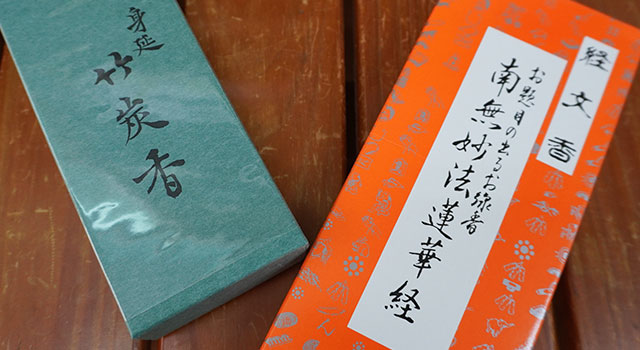 身延
竹炭香
経文香
お題目の出るお線香
南無妙法蓮華経